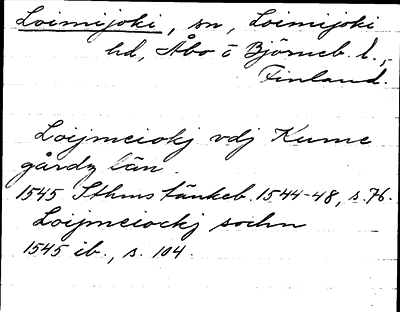 Loimijoki, sn, Loimijoki
hd, Åbo o Björneb. l.,
Finland.
Loijmeiokj vdj Kume
gårdz län.
1545 Sthms tänkeb. 1544-48, s. 76.
Loijmeiockj sochn
1545 ib., s. 104.